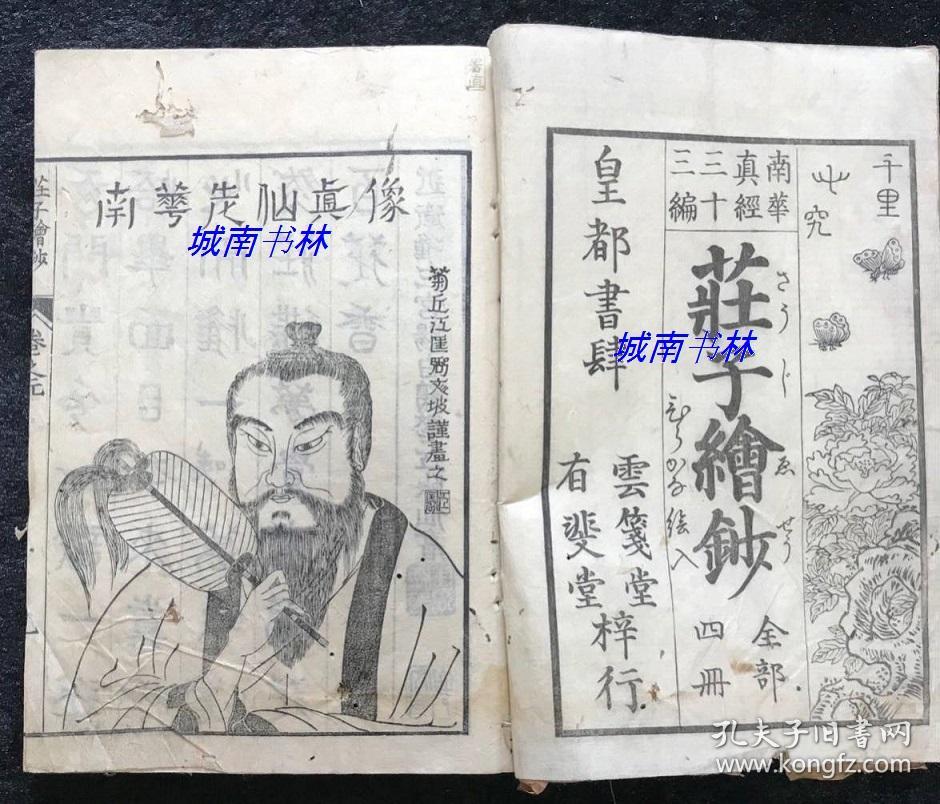 千里
究
南華
真經
三十
三編
莊子繪鈔
さうじゑせう
ひらがな絵入
全部
四冊
皇都書肆
雲箋堂
有斐堂
梓行
南華老仙真像
菊丘江匡弼文坡謹畫之
莊子繪鈔
卷之元
城南书林
城南书林
孔夫子旧书网
@kongfz.com